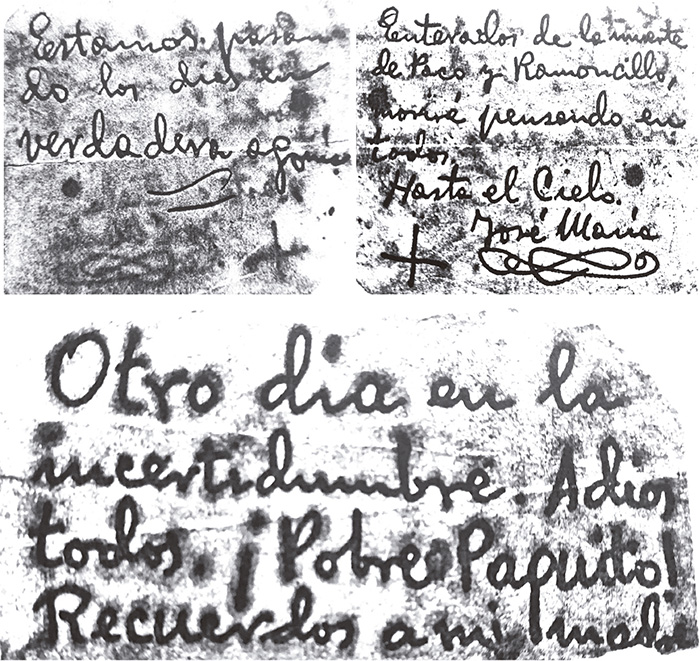 Estamos pasan
do los dias en
verdadera agonia
Enterados de la muerte
de Paco y Ramoncillo,
moriré pensando en
todos.
Hasta el Cielo.
José María
Otro dia en la
incertidumbre. Adios
todos. ¡Pobre Paquito!
Recuerdos a mi madre